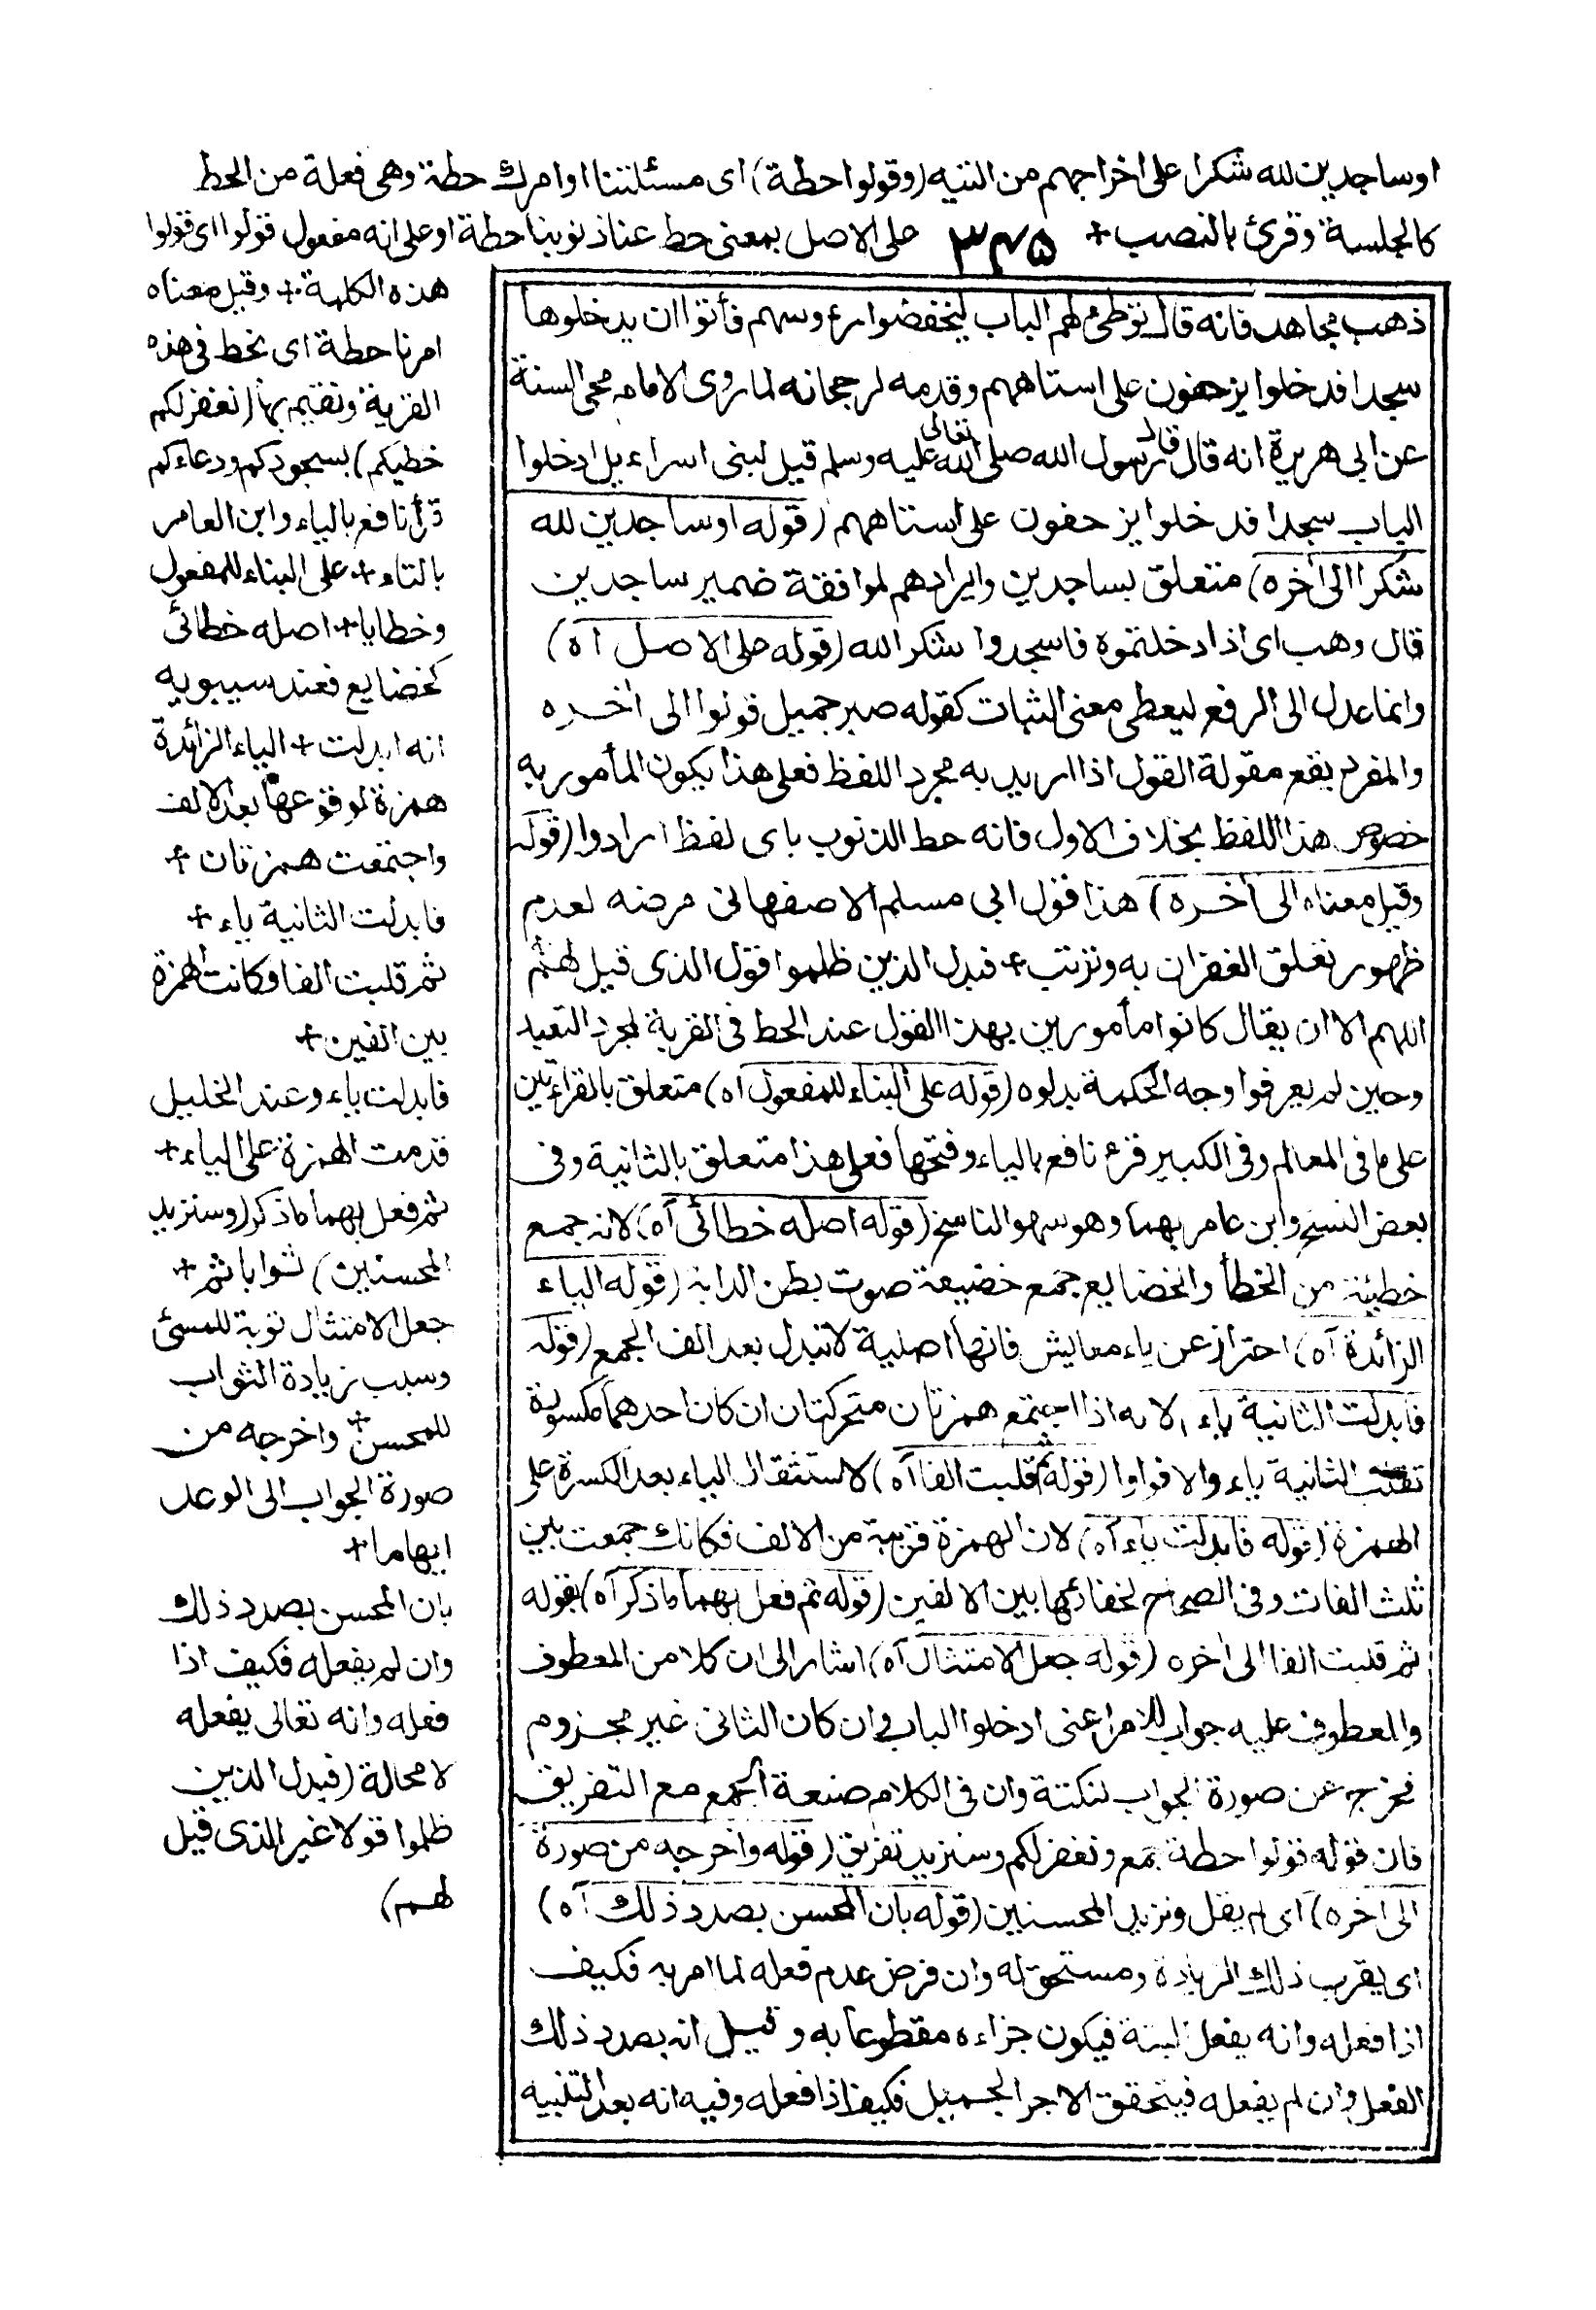 اوساجدين لله شكرا على اخراجهم من التيه (وقولوا حطة) اى مسئلتنا اوامرك حطة وهى فعلة من الحط
كالجلسة وقرئ بالنصب + ٣٤٥ على الاصل بمعنى حط عنا ذنوبنا حطة اوعلى انه مفعول قولوا اى قولوا
هذه الكلمة + وقيل معناه
امرنا حطة اى نحط فى هذه
القرية ونقيم بها (نغفر لكم
خطيكم) بسجودكم ودعاءكم
قرأ نافع بالياء وابن العامر
بالتاء + على البناء للمفعول
وخطايا + اصله خطائى
كخضايع فعند سيبويه
انه ابدلت + الياء الزائدة
همزة لوقوعها بعد الالف
واجتمعت همزتان +
فابدلت الثانية ياء +
ثم قلبت الفا وكانت الهمزة
بين الفين +
فابدلت ياء وعند الخليل
قدمت الهمزة على الياء +
ثم فعل بهما ماذكر (وسنزيد
المحسنين) ثوابا ثم +
جعل الامتثال توبة للمسئ
وسبب زيادة الثواب
للمحسن + واخرجه من
صورة الجواب الى الوعد
ايهاما +
بان المحسن بصدد ذلك
وان لم يفعله فكيف اذا
فعله وانه تعالى يفعله
لا محالة (فبدل الذين
ظلموا قولا غير الذى قيل
لهم)
ذهب مجاهد فانه قال توطئ لهم الباب ليخفضوا رءوسهم فأتوا ان يدخلوها
سجدا فدخلوا يزحفون على استاههم وقدمه لرجحانه لما روى الامام محى السنة
عن ابى هريرة انه قال قال رسول الله صلى الله تعالى عليه وسلم قيل لبنى اسراءيل ادخلوا
الباب سجدا فدخلوا يزحفون على استاههم (قوله اوساجدين لله
شكرا الى أخره) متعلق بساجدين وايرادهم لموافقة ضمير ساجدين
قال وهب اى اذا دخلتموه فاسجدوا شكرا لله (قوله على الاصل اه)
وانما عدل الى الرفع ليعطى معنى الثبات كقوله صبر جميل قولوا الى أخره
والمفرد يقع مقولة القول اذا اريد به مجرد اللفظ فعلى هذا يكون المأمور به
خصوص هذا اللفظ بخلاف الاول فانه حط الذنوب باى لفظ ارادوا (قوله
وقيل معناه الى أخره) هذا قول ابى مسلم الاصفهانى مرضه لعدم
ظهور تعلق الغفران به وترتب + فبدل الذين ظلموا قول الذى قيل لهم
اللهم الا ان يقال كانوا مأمورين بهذا القول عند الحط فى القرية لمجرد التعبد
وحين لم يعرفوا وجه الحكمة بدلوه (قوله على البناء للمفعول اه) متعلق بالقراءتين
على ما فى المعالم وفى الكبير قرء نافع بالياء وفتحها فعلى هذا متعلق بالثانية وفى
بعض النسخ وابن عامر بهما وهو سهو الناسخ (قوله اصله خطائى آه) لانه جمع
خطيئة من الخطأ والخضايع جمع خضيعة صوت بطن الدابة (قوله الياء
الزائدة آه) احتراز عن ياء معايش فانها اصلية لا تبدل بعد الف الجمع (قوله
فابدلت الثانية ياء) لانه اذا اجتمع همزتان متحركتان ان كان احدهما مكسورة
تقلب الثانية ياء والا فواوا (قوله ثم قلبت الفا آه) لاستثقال الياء بعد الكسرة على
الهمزة (قوله فابدلت ياء آه) لان الهمزة قريبة من الالف فكانك جمعت بين
ثلث الفات وفى الصحاح لخفائها بين الالفين (قوله ثم فعل بهما ماذكر آه) بقوله
ثم قلبت الفا الى أخره (قوله جعل الامتثال آه) اشار الى ان كلا من المعطوف
والمعطوف عليه جواب للامر اعنى ادخلوا الباب وان كان الثانى غير مجزوم
فخرج عن صورة الجواب لنكتة وان فى الكلام صنعة الجمع مع التفريق
فان قوله قولوا حطة جمع ونغفر لكم وسنزيد تفريق (قوله واخرجه من صورة
الى اخره) اى لم يقل ونزيد المحسنين (قوله بان المحسن بصدد ذلك آه)
اى يقرب ذلك الزيادة ومستحق له وان فرض عدم فعله لما امر به فكيف
اذا فعله وانه يفعل البتة فيكون جزاءه مقطوعا به وقيل انه بصدد ذلك
الفعل وان لم يفعله فيتحقق الاجر الجميل فكيف اذا فعله وفيه انه بعد التنبيه